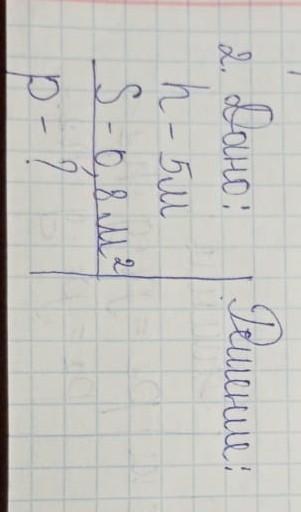 2. Дано:
h - 5м
S - 0,8 м²
p - ?
Решение: